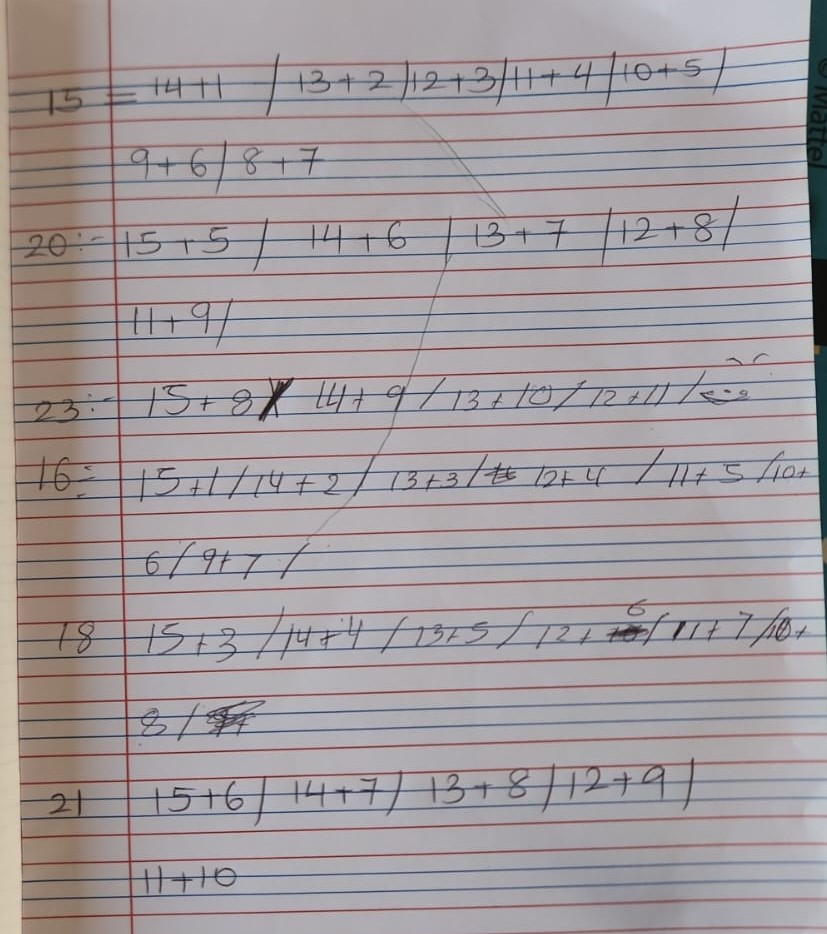 15 = 14+1 / 13+2 / 12+3 / 11+4 / 10+5 /
9+6 / 8+7
20:- 15+5 / 14+6 / 13+7 / 12+8 /
11+9 /
23:- 15+8 / 14+9 / 13+10 / 12+11 /
16= 15+1 / 14+2 / 13+3 / 12+4 / 11+5 / 10+
6 / 9+7 /
18 15+3 / 14+4 / 13+5 / 12+6 / 11+7 / 10+
8 /
21 15+6 / 14+7 / 13+8 / 12+9 /
11+10
Mattel